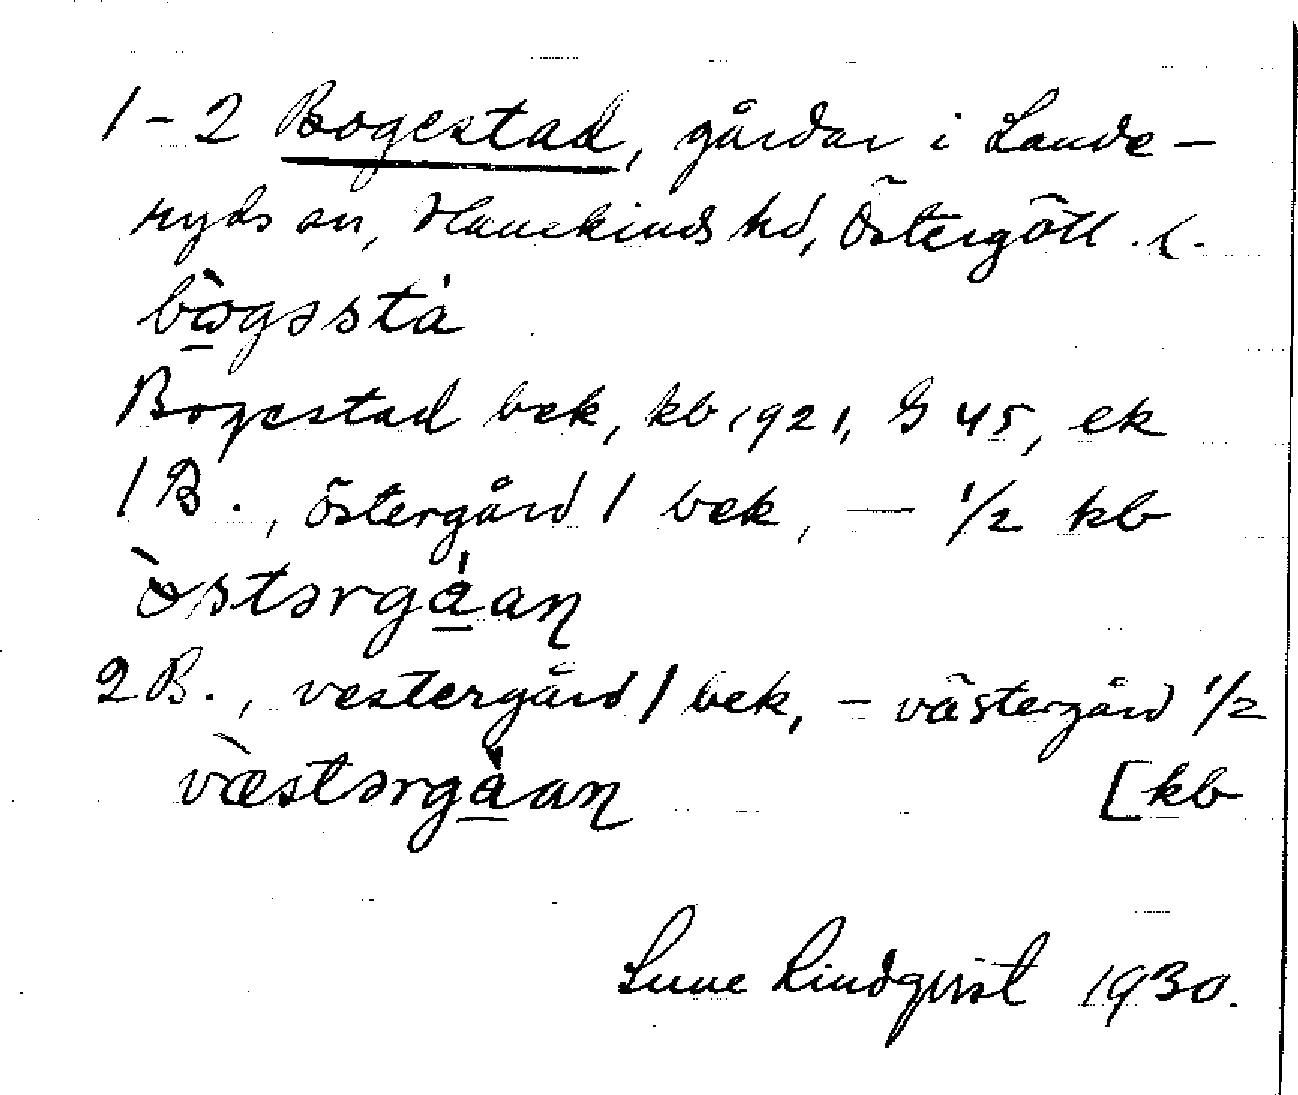 1-2 Bogestad, gårdar i Lande-
ryds sn, Hanekinds hd, Östergötl. l.
bògəstá
Bogestad bek, kb 1921, G 45, ek
1 B., östergård 1 bek, — 1/2 kb
òstərgáan
2 B., vestergård 1 bek, - västergård 1/2
væ̀stərgáan [kb
Sune Lindqvist 1930.